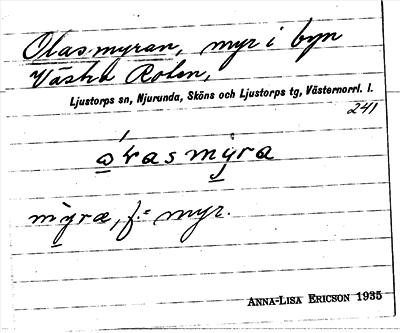 Olasmyran, myr i byn
Västra Rolen,
Ljustorps sn, Njurunda, Sköns och Ljustorps tg, Västernorrl. l.
241
myra, f. = myr.
ANNA-LISA ERICSON 1935